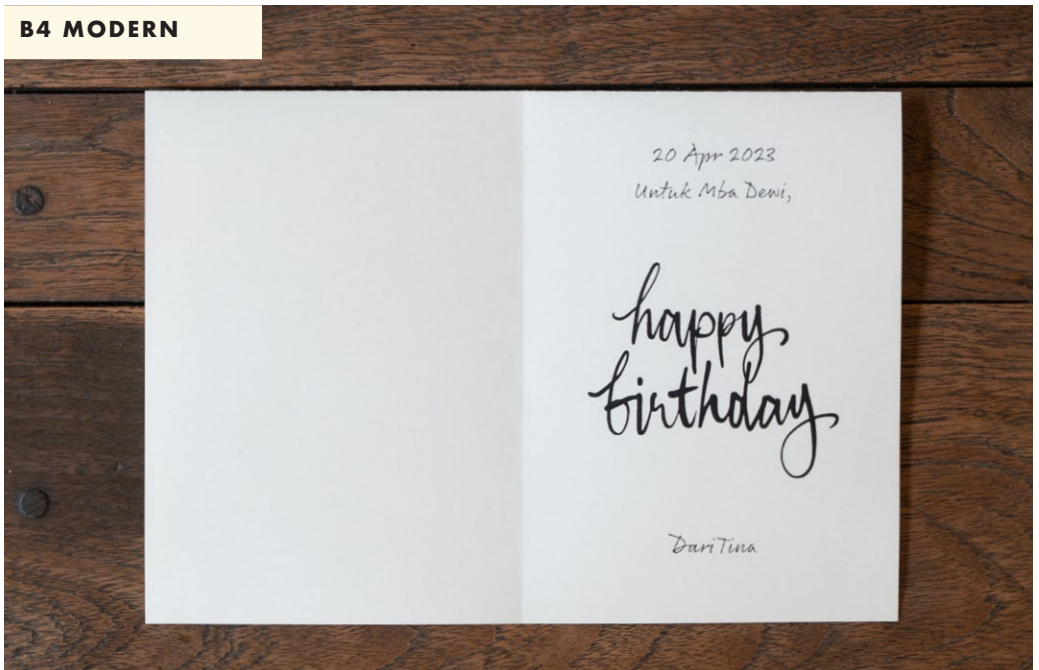 B4 MODERN
20 Apr 2023
Untuk Mba Dewi,
happy
birthday
Dari Tina